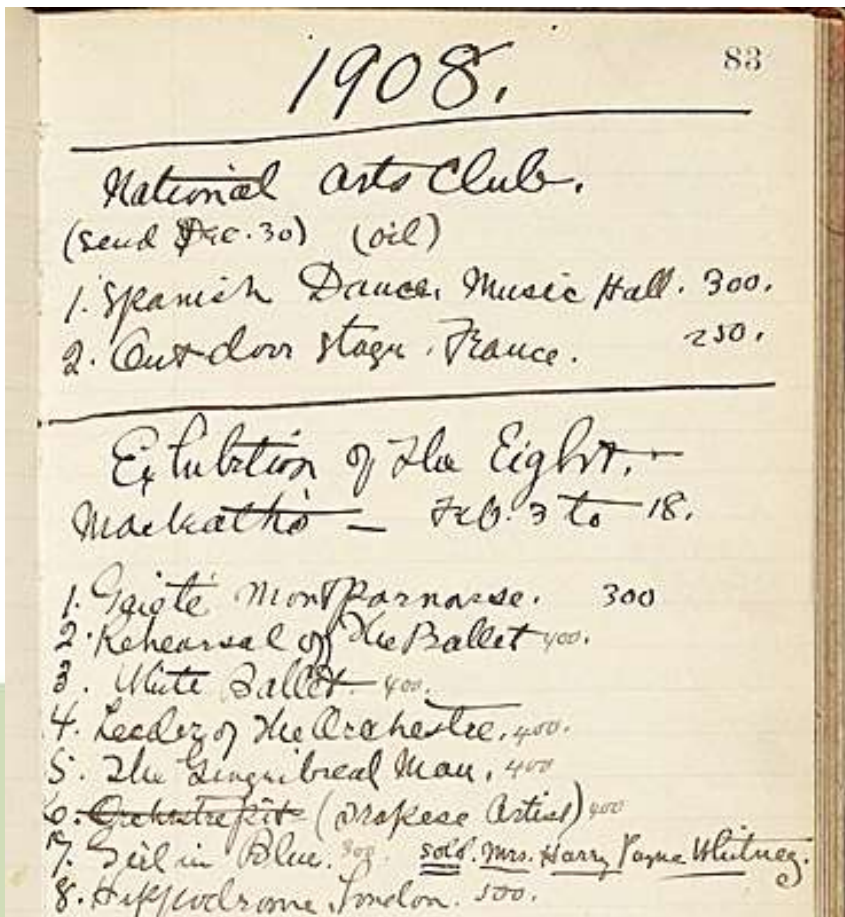 83
1908.
National Arts Club.
(send Dec. 30) (oil)
1. Spanish Dance, Music Hall. 300.
2. Out door Stage. France. 250.
Exhibition of The Eight. —
Macbeth's — Feb. 3 to 18.
1. Gaieté Montparnasse. 300
2. Rehearsal of The Ballet 400.
3. White Ballet 400.
4. Leader of The Orchestra. 400.
5. The Gingerbread Man. 400
6. Orchestra pit (Trapese Artist) 400
7. Girl in Blue. 300. sold. Mrs. Harry Payne Whitney.
8. Hippodrome, London. 500.